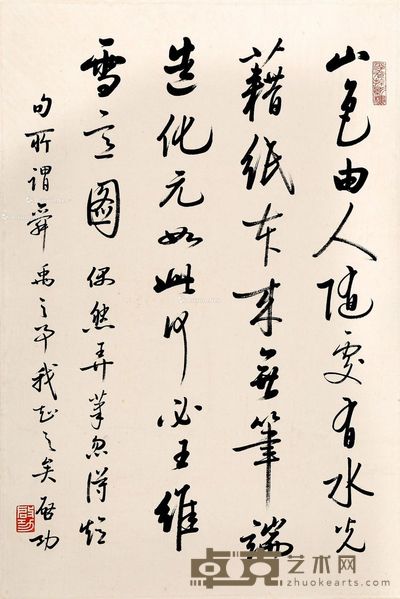 山色由人随处有水光
藉纸本来无笔端
造化元如此何必王维
雪意图 偶然弄笔忽得短
句所谓舜禹之事我知之矣 启功
卓克艺术网
zhuokearts.com